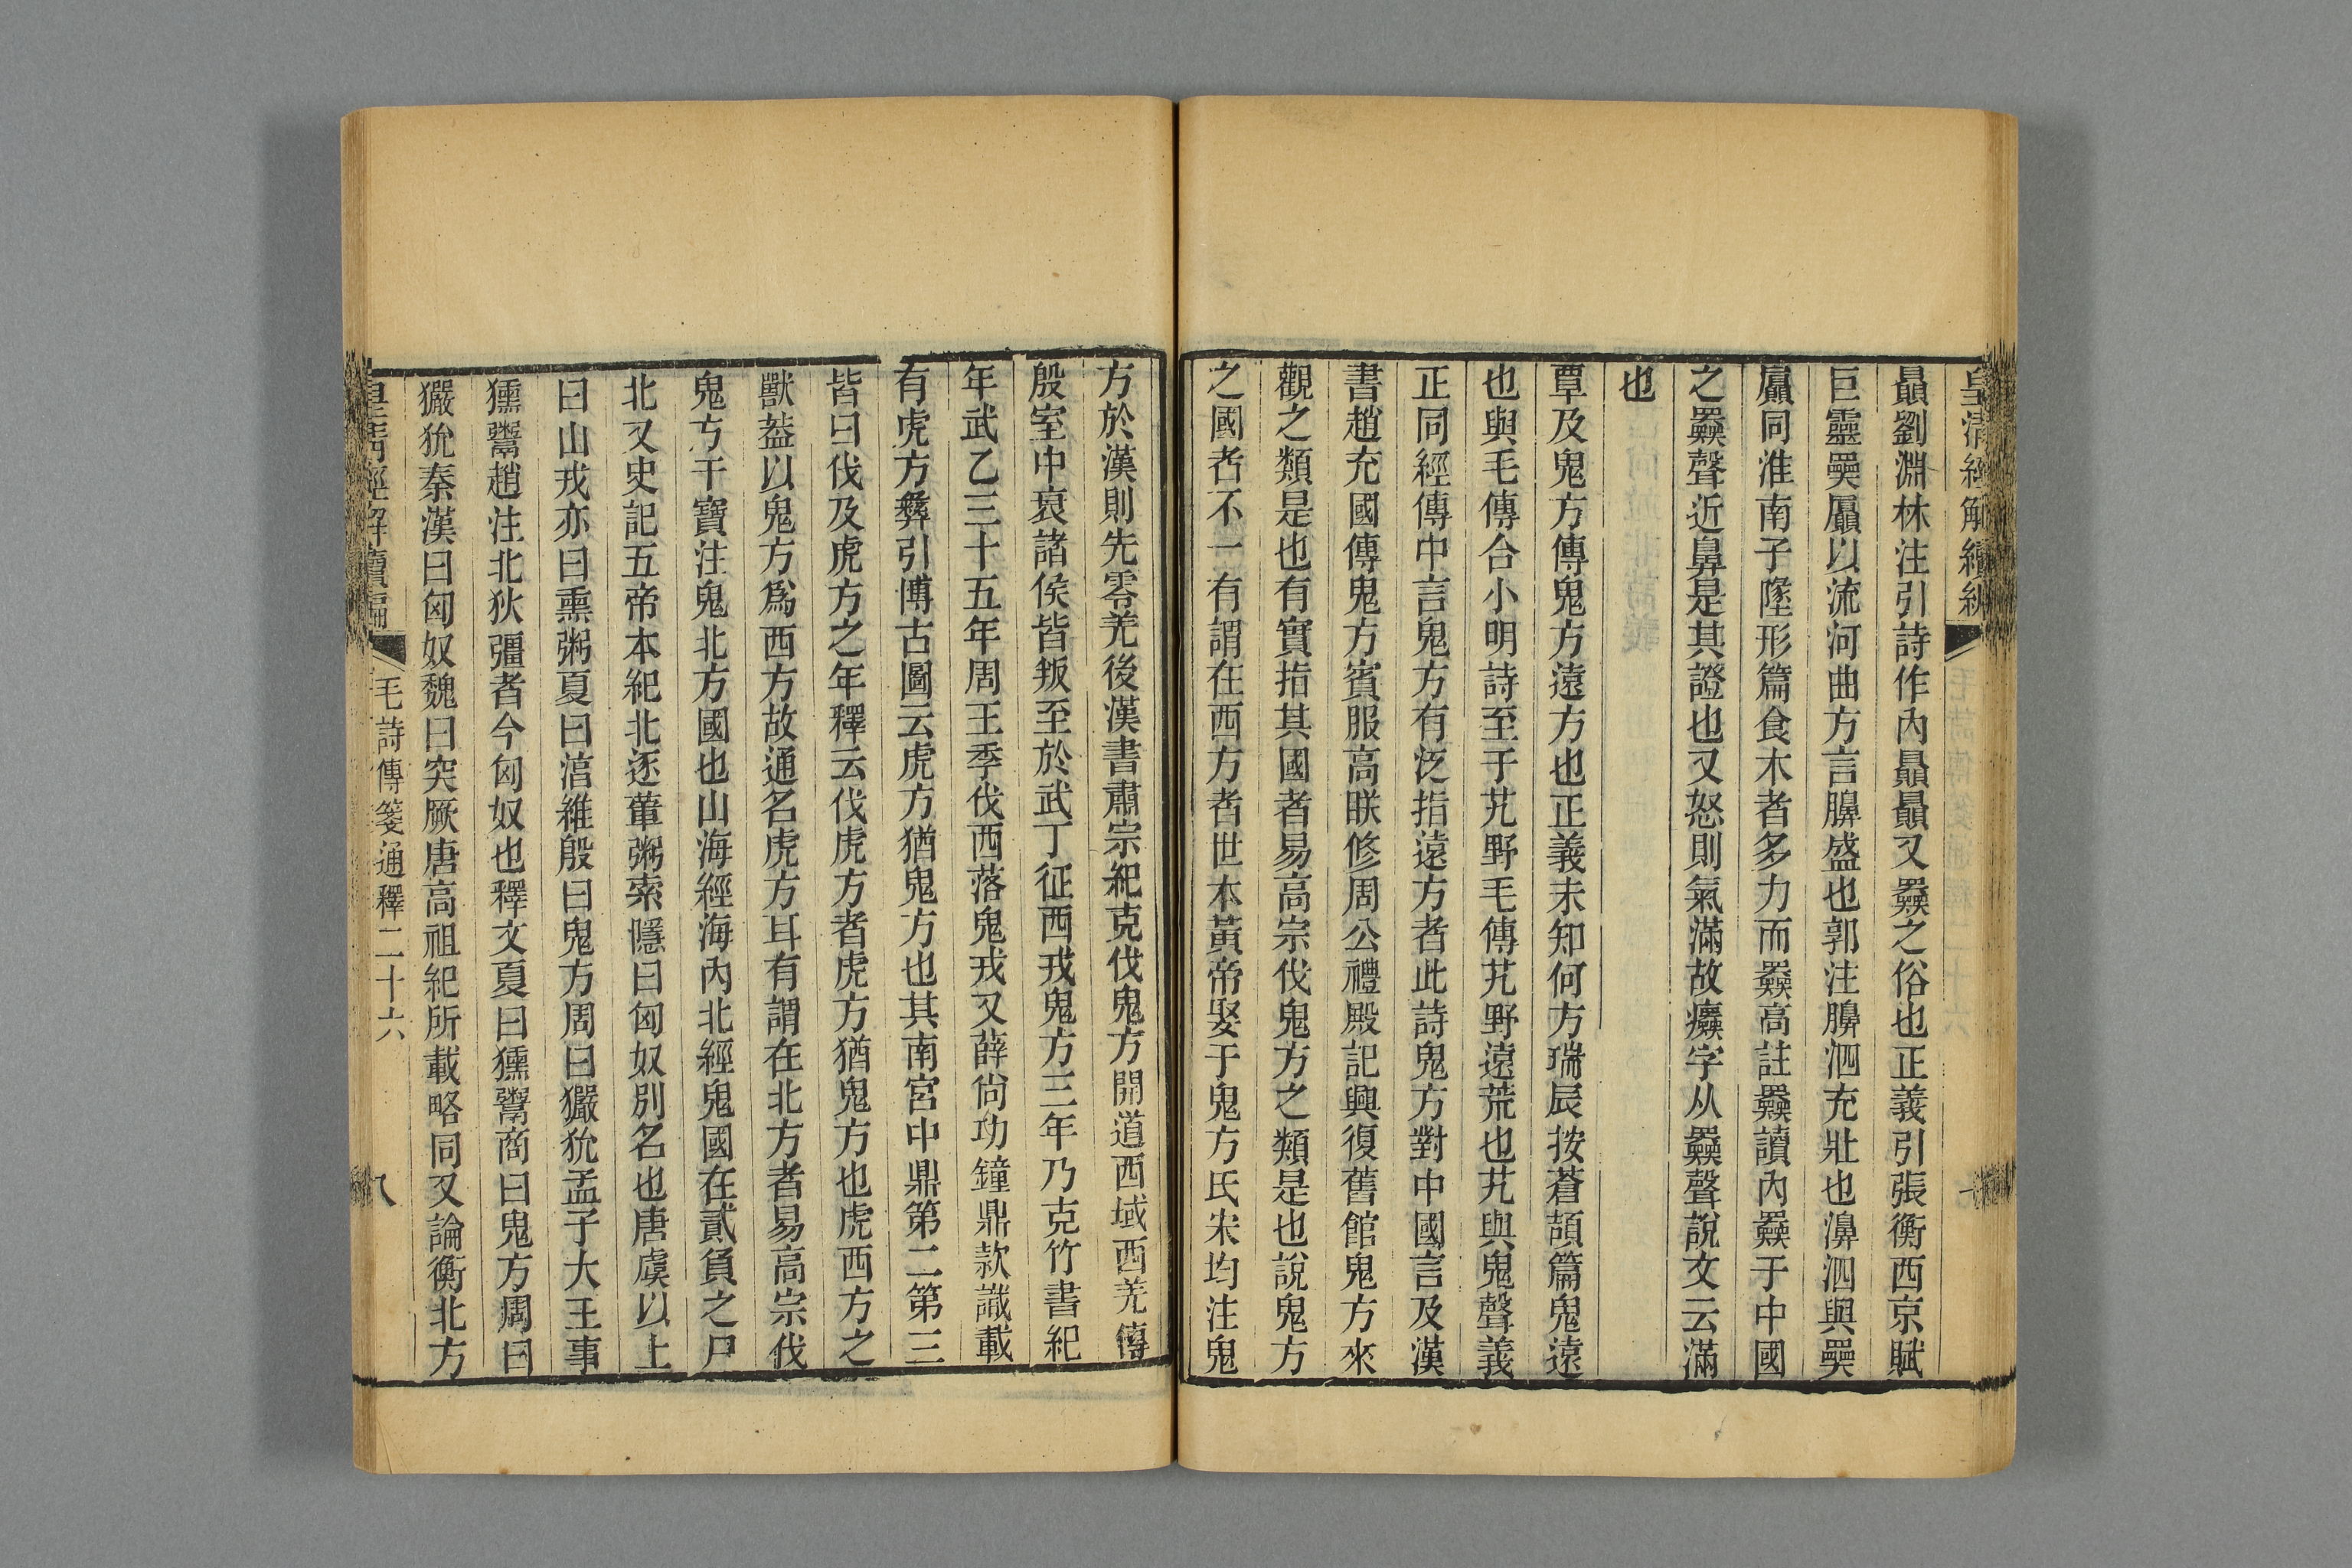 皇清經解續編
毛詩傳箋通釋二十六
贔劉淵林注引詩作內贔贔又奰之俗也正義引張衡西京賦
巨靈奰屭以流河曲方言膞盛也郭注膞泗充壯也濞泗與奰
屭同淮南子墬形篇食木者多力而奰高註奰讀內奰于中國
之奰聲近鼻是其證也又怒則氣滿故癳字从奰聲說文云滿
也
覃及鬼方傳鬼方遠方也正義未知何方瑞辰按蒼頡篇鬼遠
也與毛傳合小明詩至于艽野毛傳艽野遠荒也艽與鬼聲義
正同經傳中言鬼方有泛指遠方者此詩鬼方對中國言及漢
書趙充國傳鬼方賓服高眹修周公禮殿記興復舊館鬼方來
觀之類是也有實指其國者易高宗伐鬼方之類是也說鬼方
之國者不一有謂在西方者世本黃帝娶于鬼方氏宋均注鬼
方於漢則先零羌後漢書肅宗紀克伐鬼方開道西域西羌傳
殷室中衰諸侯皆叛至於武丁征西戎鬼方三年乃克竹書紀
年武乙三十五年周王季伐西落鬼戎又薛尙功鐘鼎款識載
有虎方彝引博古圖云虎方猶鬼方也其南宮中鼎第二第三
皆曰伐及虎方之年釋云伐虎方者虎方猶鬼方也虎西方之
獸葢以鬼方爲西方故通名虎方耳有謂在北方者易高宗伐
鬼方干寶注鬼北方國也山海經海內北經鬼國在貳負之尸
北又史記五帝本紀北逐葷粥索隱曰匈奴別名也唐虞以上
曰山戎亦曰熏粥夏曰淳維殷曰鬼方周曰玁狁孟子大王事
獯鬻趙注北狄彊者今匈奴也釋文夏曰獯鬻商曰鬼方周曰
玁狁秦漢曰匈奴魏曰突厥唐高祖紀所載略同又論衡北方
皇清經解續編
毛詩傳箋通釋二十六
八